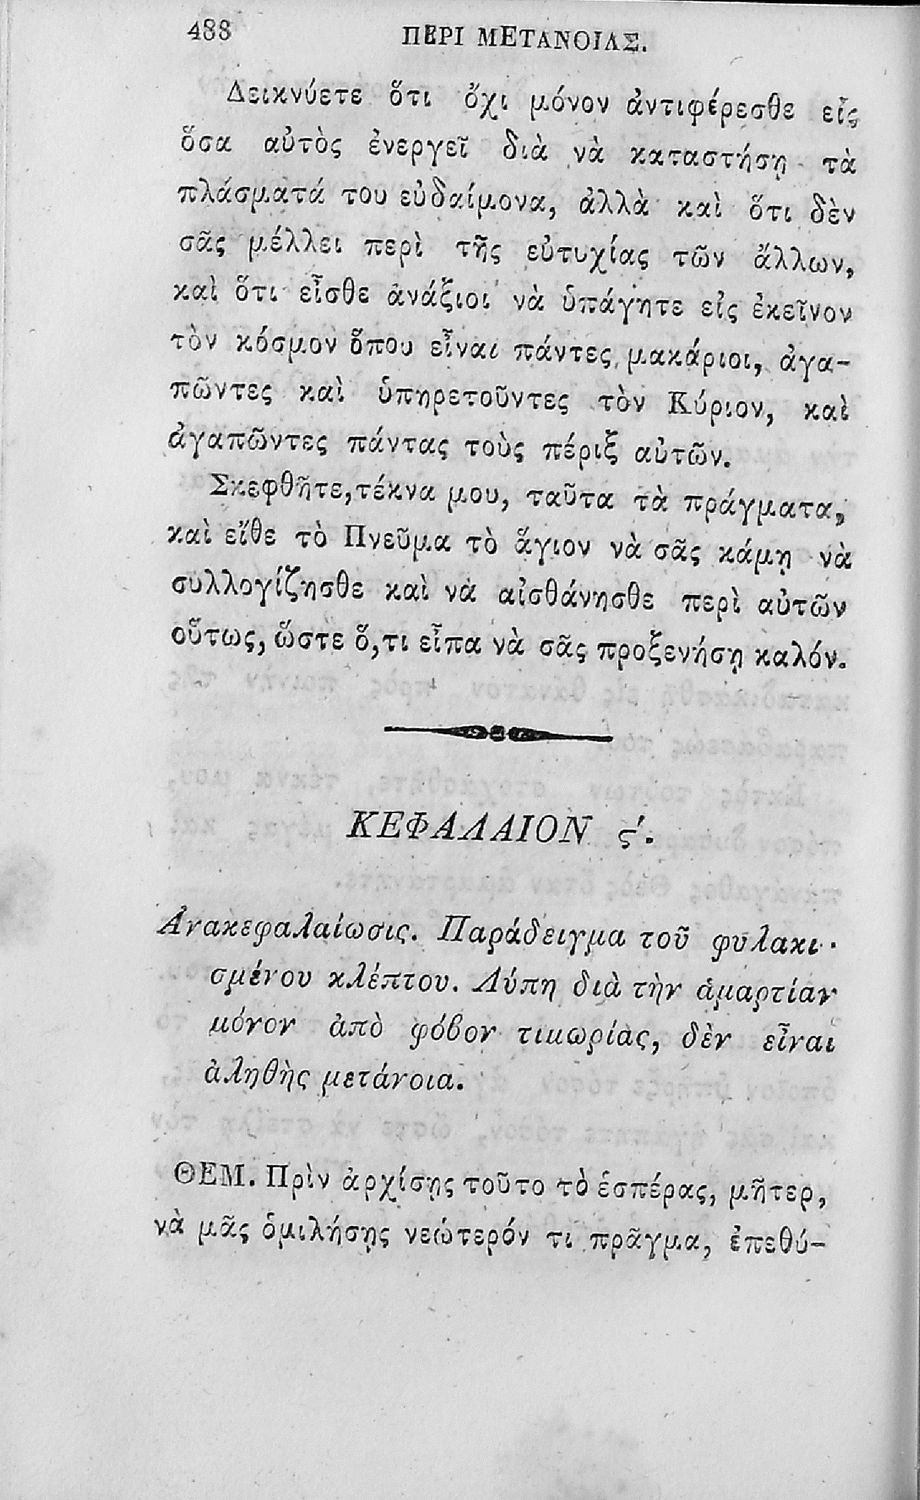 488 ΠΕΡΙ ΜΕΤΑΝΟΙΑΣ.
Δεικνύετε ὅτι ὄχι μόνον ἀντιφέρεσθε εἰς
ὅσα αὐτὸς ἐνεργεῖ διὰ νὰ καταστήσῃ τὰ
πλάσματά του εὐδαίμονα, ἀλλὰ καὶ ὅτι δὲν
σᾶς μέλλει περὶ τῆς εὐτυχίας τῶν ἄλλων,
καὶ ὅτι εἶσθε ἀνάξιοι νὰ ὑπάγητε εἰς ἐκεῖνον
τὸν κόσμον ὅπου εἶναι πάντες μακάριοι, ἀγα-
πῶντες καὶ ὑπηρετοῦντες τὸν Κύριον, καὶ
ἀγαπῶντες πάντας τοὺς πέριξ αὐτῶν.
Σκεφθῆτε, τέκνα μου, ταῦτα τὰ πράγματα,
καὶ εἴθε τὸ Πνεῦμα τὸ ἅγιον νὰ σᾶς κάμῃ νὰ
συλλογίζησθε καὶ νὰ αἰσθάνησθε περὶ αὐτῶν
οὕτως, ὥστε ὅ,τι εἶπα νὰ σᾶς προξενήσῃ καλόν.
ΚΕΦΑΛΑΙΟΝ ς'.
Ἀνακεφαλαίωσις. Παράδειγμα τοῦ φυλακι-
σμένου κλέπτου. Λύπη διὰ τὴν ἁμαρτίαν
μόνον ἀπὸ φόβον τιμωρίας, δὲν εἶναι
ἀληθὴς μετάνοια.
ΘΕΜ. Πρὶν ἀρχίσῃς τοῦτο τὸ ἑσπέρας, μῆτερ,
νὰ μᾶς ὁμιλήσῃς νεώτερόν τι πρᾶγμα, ἐπεθύ-